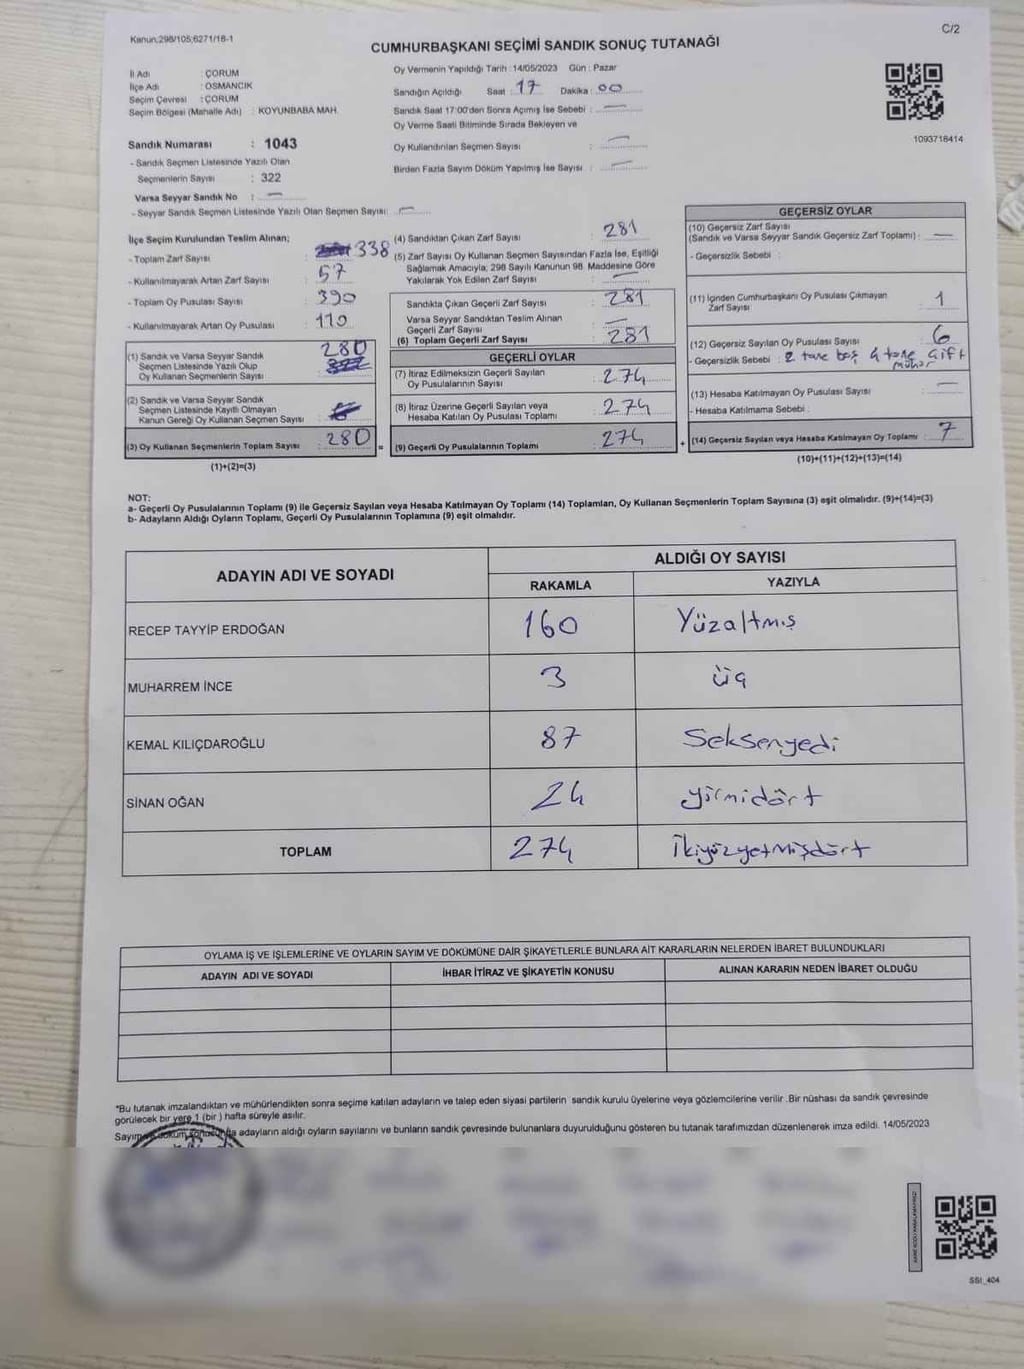 Kanun;298/105;6271/16-1
C/2
CUMHURBAŞKANI SEÇİMİ SANDIK SONUÇ TUTANAĞI
İl Adı : ÇORUM
İlçe Adı : OSMANCIK
Seçim Çevresi : ÇORUM
Seçim Bölgesi (Mahalle Adı) : KOYUNBABA MAH.
Oy Vermenin Yapıldığı Tarih : 14/05/2023 Gün : Pazar
Sandığın Açıldığı Saat : 17 Dakika : 00
Sandık Saat 17:00'den Sonra Açılmış İse Sebebi : —
Oy Verme Saati Bitiminde Sırada Bekleyen ve
Oy Kullandırılan Seçmen Sayısı : —
Birden Fazla Sayım Döküm Yapılmış İse Sayısı : —
1093716414
Sandık Numarası : 1043
- Sandık Seçmen Listesinde Yazılı Olan
Seçmenlerin Sayısı : 322
Varsa Seyyar Sandık No : —
- Seyyar Sandık Seçmen Listesinde Yazılı Olan Seçmen Sayısı: —
İlçe Seçim Kurulundan Teslim Alınan;
- Toplam Zarf Sayısı : 338
- Kullanılmayarak Artan Zarf Sayısı : 57
- Toplam Oy Pusulası Sayısı : 390
- Kullanılmayarak Artan Oy Pusulası : 110
(1) Sandık ve Varsa Seyyar Sandık
Seçmen Listesinde Yazılı Olup
Oy Kullanan Seçmenlerin Sayısı : 280
(2) Sandık ve Varsa Seyyar Sandık
Seçmen Listesinde Kayıtlı Olmayan
Kanun Gereği Oy Kullanan Seçmen Sayısı :
(3) Oy Kullanan Seçmenlerin Toplam Sayısı : 280
(1)+(2)=(3)
(4) Sandıktan Çıkan Zarf Sayısı : 281
(5) Zarf Sayısı Oy Kullanan Seçmen Sayısından Fazla İse, Eşitliği
Sağlamak Amacıyla; 298 Sayılı Kanunun 98. Maddesine Göre
Yakılarak Yok Edilen Zarf Sayısı : —
Sandıkta Çıkan Geçerli Zarf Sayısı : 281
Varsa Seyyar Sandıktan Teslim Alınan
Geçerli Zarf Sayısı : —
(6) Toplam Geçerli Zarf Sayısı : 281
GEÇERLİ OYLAR
(7) İtiraz Edilmeksizin Geçerli Sayılan
Oy Pusulalarının Sayısı : 274
(8) İtiraz Üzerine Geçerli Sayılan veya
Hesaba Katılan Oy Pusulası Toplamı : 274
= (9) Geçerli Oy Pusulalarının Toplamı : 274
GEÇERSİZ OYLAR
(10) Geçersiz Zarf Sayısı
(Sandık ve Varsa Seyyar Sandık Geçersiz Zarf Toplamı) : —
- Geçersizlik Sebebi :
(11) İçinden Cumhurbaşkanı Oy Pusulası Çıkmayan
Zarf Sayısı : 1
(12) Geçersiz Sayılan Oy Pusulası Sayısı : 6
- Geçersizlik Sebebi : 2 tane boş 4 tane çift
mühür
(13) Hesaba Katılmayan Oy Pusulası Sayısı : —
- Hesaba Katılmama Sebebi :
+ (14) Geçersiz Sayılan veya Hesaba Katılmayan Oy Toplamı : 7
(10)+(11)+(12)+(13)=(14)
NOT:
a- Geçerli Oy Pusulalarının Toplamı (9) ile Geçersiz Sayılan veya Hesaba Katılmayan Oy Toplamı (14) Toplamları, Oy Kullanan Seçmenlerin Toplam Sayısına (3) eşit olmalıdır. (9)+(14)=(3)
b- Adayların Aldığı Oyların Toplamı, Geçerli Oy Pusulalarının Toplamına (9) eşit olmalıdır.
ADAYIN ADI VE SOYADI
ALDIĞI OY SAYISI
RAKAMLA YAZIYLA
RECEP TAYYİP ERDOĞAN 160 Yüzaltmış
MUHARREM İNCE 3 üç
KEMAL KILIÇDAROĞLU 87 Seksenyedi
SİNAN OĞAN 24 yirmidört
TOPLAM 274 İkiyüzyetmişdört
OYLAMA İŞ VE İŞLEMLERİNE VE OYLARIN SAYIM VE DÖKÜMÜNE DAİR ŞİKAYETLERLE BUNLARA AİT KARARLARIN NELERDEN İBARET BULUNDUKLARI
ADAYIN ADI VE SOYADI İHBAR İTİRAZ VE ŞİKAYETİN KONUSU ALINAN KARARIN NEDEN İBARET OLDUĞU
*Bu tutanak imzalandıktan ve mühürlendikten sonra seçime katılan adayların ve talep eden siyasi partilerin sandık kurulu üyelerine veya gözlemcilerine verilir. Bir nüshası da sandık çevresinde
görülecek bir yere 1 (bir) hafta süreyle asılır.
Sayım ve döküm sonucunda adayların aldığı oyların sayılarını ve bunların sandık çevresinde bulunanlara duyurulduğunu gösteren bu tutanak tarafımızdan düzenlenerek imza edildi. 14/05/2023
SSI_404